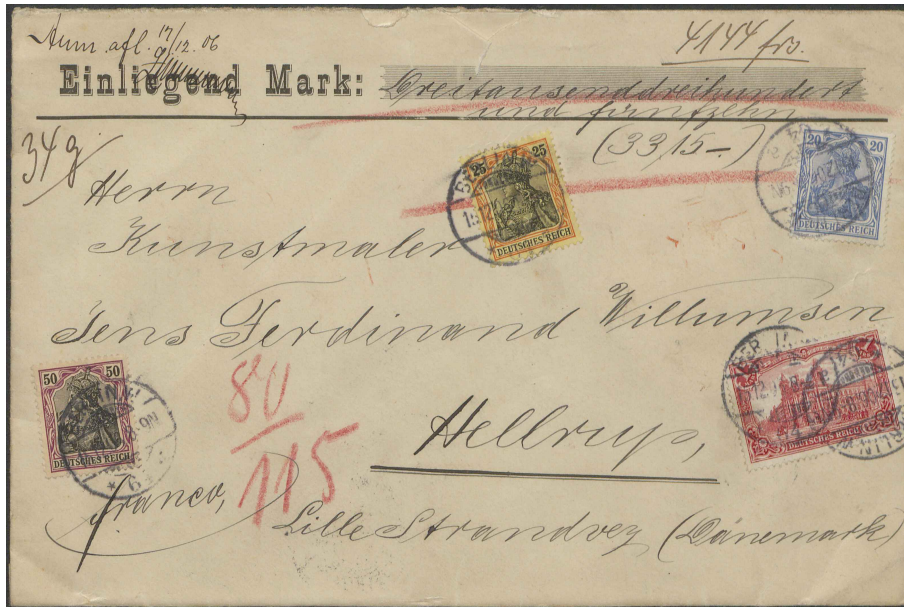 Anm. afl. 17/12. 06
4144 frs.
Einliegend Mark: Dreitausenddreihundert
und fünfzehn
(3315-.)
34 g
Herrn
Kunstmaler
Jens Ferdinand Willumsen
Hellrup,
Lille Strandveg (Dänemark)
franco,
80
115
25 25
DEUTSCHES REICH
20 20
DEUTSCHES REICH
50 50
DEUTSCHES REICH
1 1
DEUTSCHES REICH
BERLIN